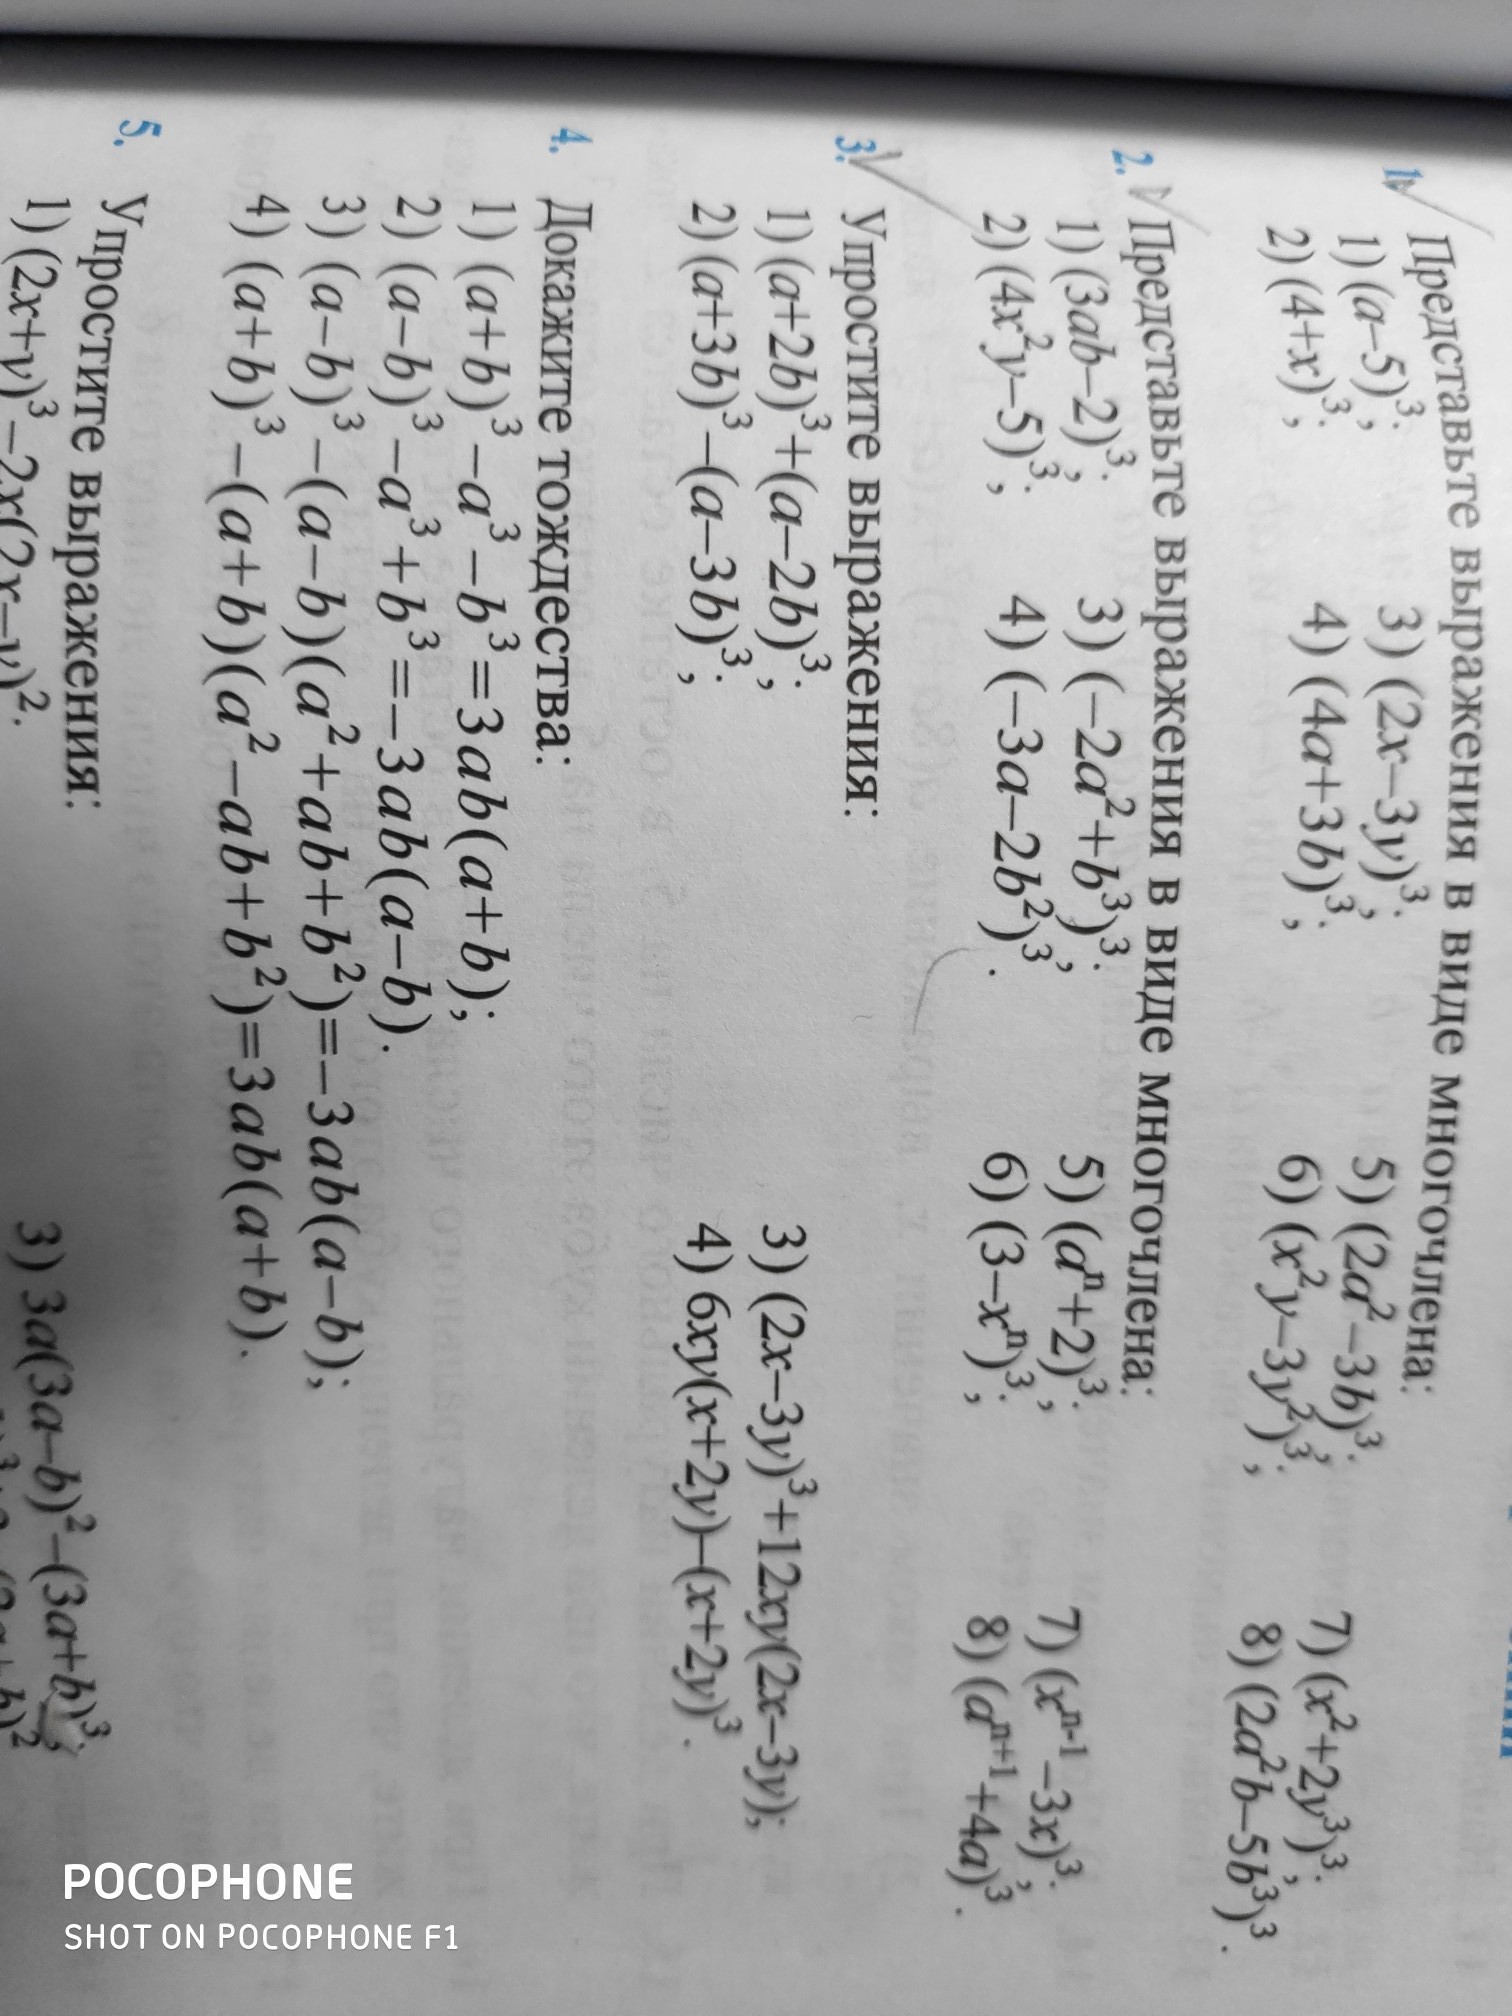 1. Представьте выражения в виде многочлена:
1) (a–5)³; 3) (2x–3y)³; 5) (2a²–3b)³; 7) (x²+2y³)³;
2) (4+x)³; 4) (4a+3b)³; 6) (x²y–3y²)³; 8) (2a²b–5b³)³.
2. Представьте выражения в виде многочлена:
1) (3ab–2)³; 3) (–2a²+b³)³; 5) (aⁿ+2)³; 7) (xⁿ⁻¹–3x)³;
2) (4x²y–5)³; 4) (–3a–2b²)³. 6) (3–xⁿ)³; 8) (aⁿ⁺¹+4a)³.
3. Упростите выражения:
1) (a+2b)³+(a–2b)³; 3) (2x–3y)³+12xy(2x–3y);
2) (a+3b)³–(a–3b)³; 4) 6xy(x+2y)–(x+2y)³.
4. Докажите тождества:
1) (a+b)³–a³–b³=3ab(a+b);
2) (a–b)³–a³+b³=–3ab(a–b).
3) (a–b)³–(a–b)(a²+ab+b²)=–3ab(a–b);
4) (a+b)³–(a+b)(a²–ab+b²)=3ab(a+b).
5. Упростите выражения:
1) (2x+y)³–2x(2x–y)². 3) 3a(3a–b)²–(3a+b)³;
POCOPHONE
SHOT ON POCOPHONE F1